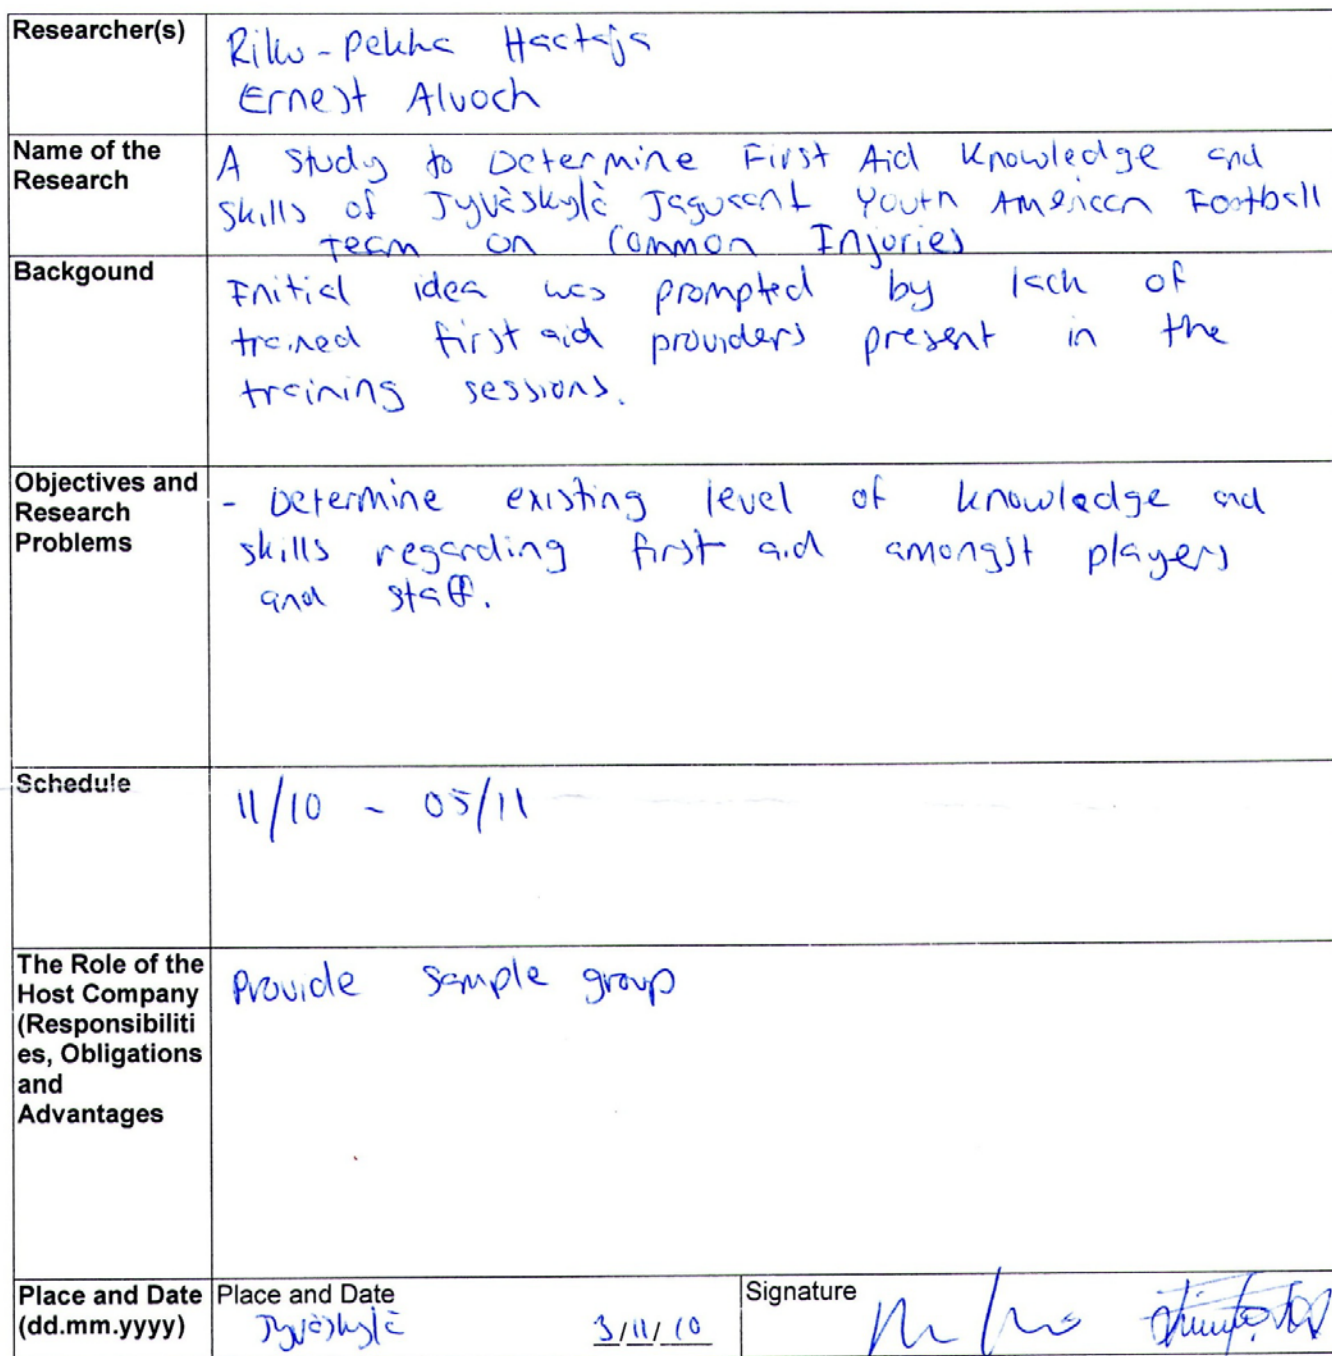 Researcher(s)
Riku-Pekka Haataja
Ernest Aluoch
Name of the
Research
A Study to Determine First Aid Knowledge and
Skills of Jyväskylä Jaguaant Youth American Football
Team on Common Injuries
Backgound
Initial idea was prompted by lack of
trained first aid providers present in the
training sessions.
Objectives and
Research
Problems
- Determine existing level of knowledge and
skills regarding first aid amongst players
and staff.
Schedule
11/10 - 05/11
The Role of the
Host Company
(Responsibiliti
es, Obligations
and
Advantages
Provide sample group
Place and Date
(dd.mm.yyyy)
Place and Date
Jyväskylä 3/11/10
Signature